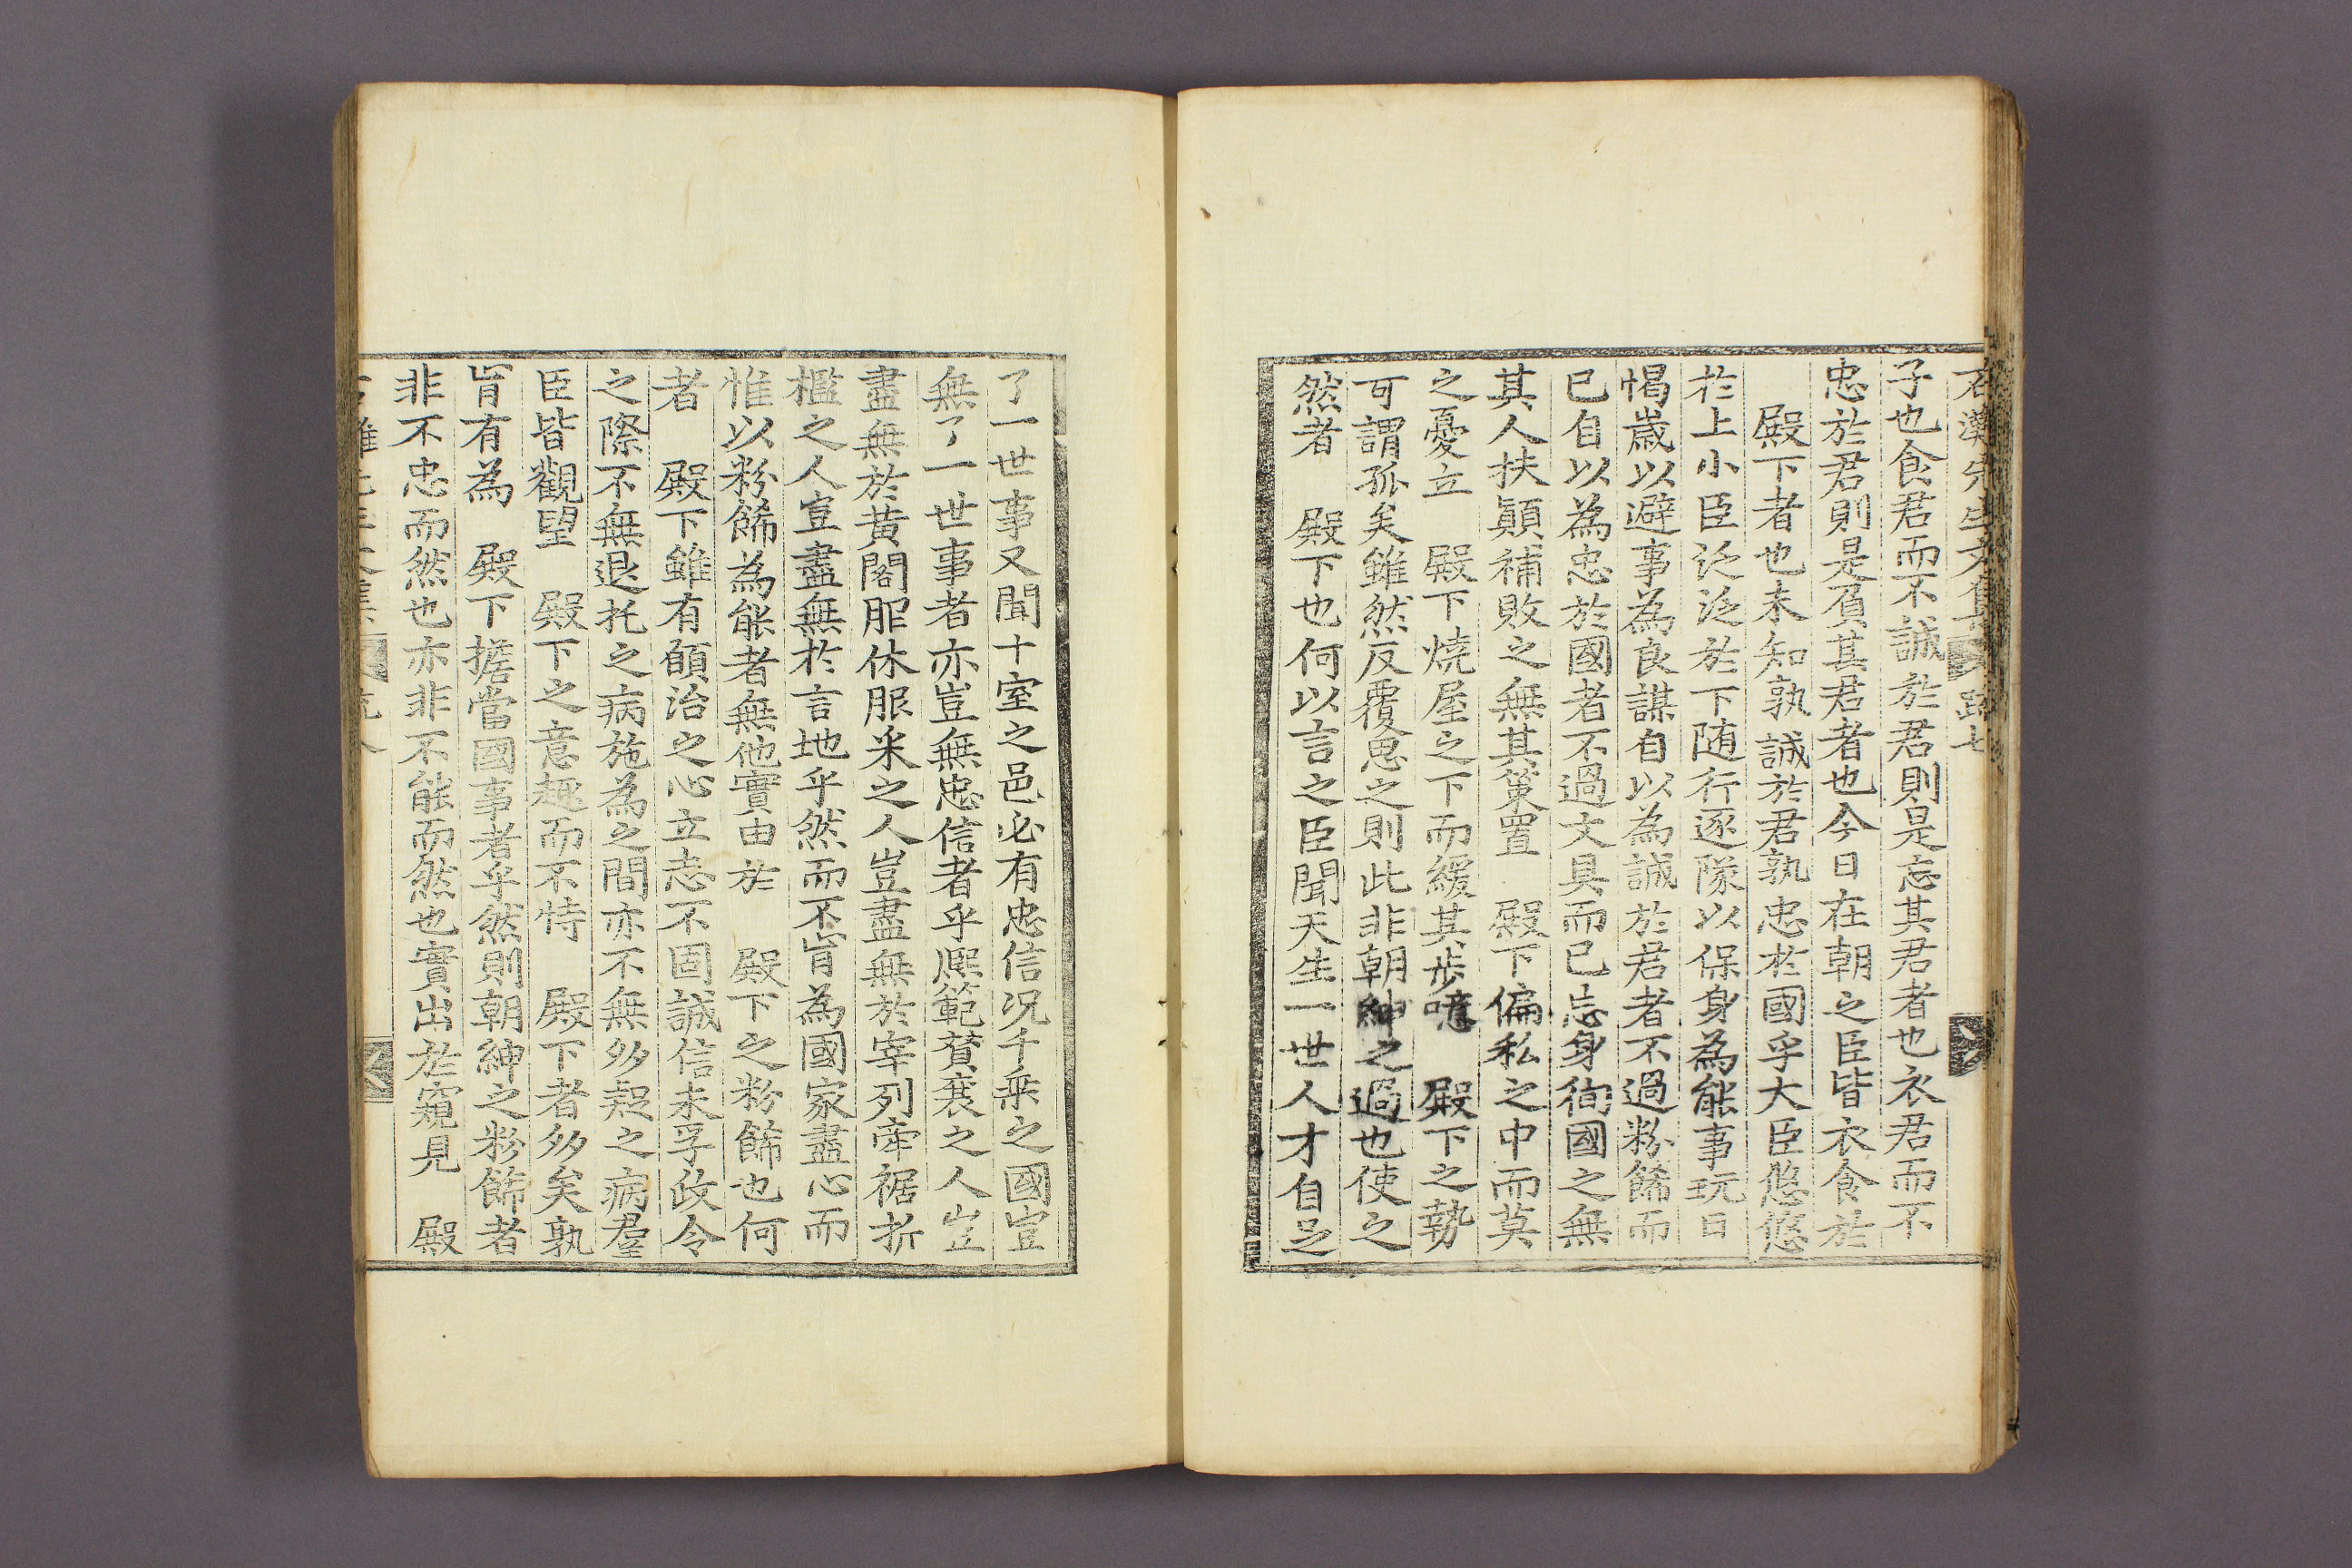 石灘先生文集 疏七
子也食君而不誠於君則是忘其君者也衣君而不
忠於君則是負其君者也今日在朝之臣皆衣食於
殿下者也未知孰誠於君孰忠於國乎大臣悠悠
於上小臣泛泛於下随行逐隊以保身為能事玩日
愒歲以避事為良謀自以為誠於君者不過粉餙而
已自以為忠於國者不過文具而已忘身徇國之無
其人扶顚補敗之無其策置 殿下偏私之中而莫
之憂立 殿下燒屋之下而緩其步噫 殿下之勢
可謂孤矣雖然反覆思之則此非朝紳之過也使之
然者 殿下也何以言之臣聞天生一世人才自足
了一世事又聞十室之邑必有忠信况千乗之國豈
無了一世事者亦豈無忠信者乎熈範賛襄之人豈
盡無於黃閣服休服采之人豈盡無於宰列牽裾折
檻之人豈盡無於言地乎然而不肯為國家盡心而
惟以粉餙為能者無他實由於 殿下之粉餙也何
者 殿下雖有願治之心立志不固誠信未孚政令
之際不無退托之病施為之間亦不無多疑之病羣
臣皆觀望 殿下之意趣而不恃 殿下者多矣孰
肯有為 殿下擔當國事者乎然則朝紳之粉餙者
非不忠而然也亦非不能而然也實出於窺見 殿